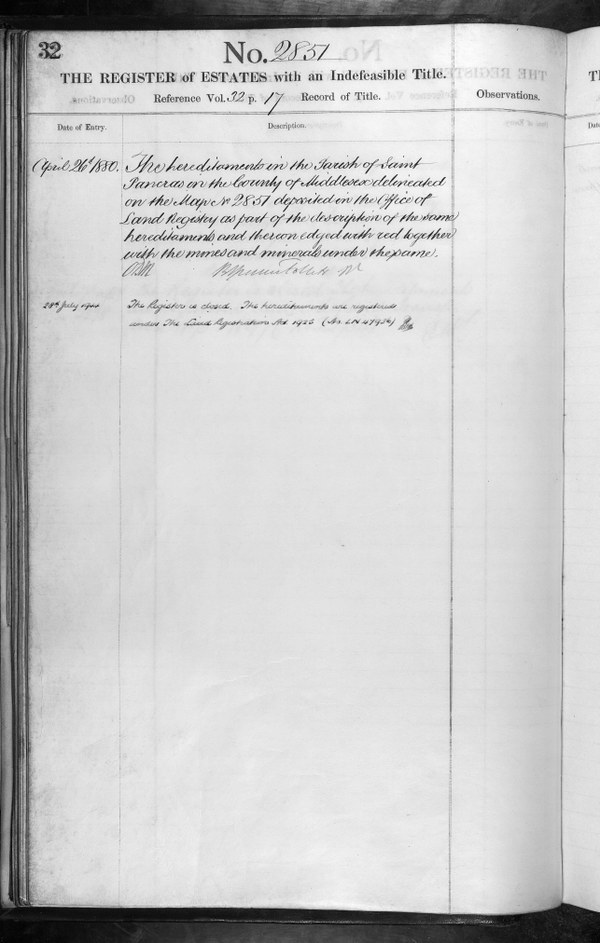 32
No. 2851
THE REGISTER of ESTATES with an Indefeasible Title.
Reference Vol. 32 p. 17 Record of Title.
Observations.
Date of Entry.
Description.
April 26th 1880. The hereditaments in the Parish of Saint
Pancras in the County of Middlesex delineated
on the Map No 2851 deposited in the Office of
Land Registry as part of the description of the same
hereditaments and thereon edged with red together
with the mines and minerals under the same.
28th July The Register is closed. The hereditaments are registered
under The Land Registration Act 1925 (No LN 47956)